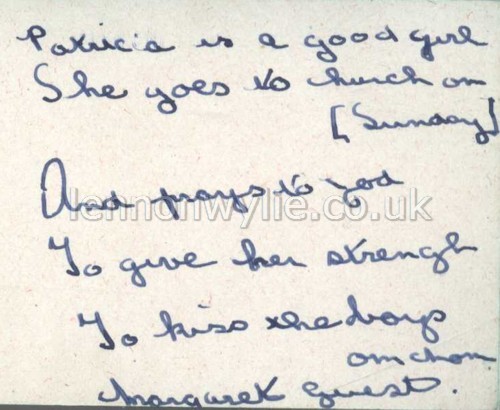 Patricia is a good girl
She goes to church on
[Sunday]
And prays to god
lennonwylie.co.uk
To give her strength
To kiss the boys
Margaret Guest.